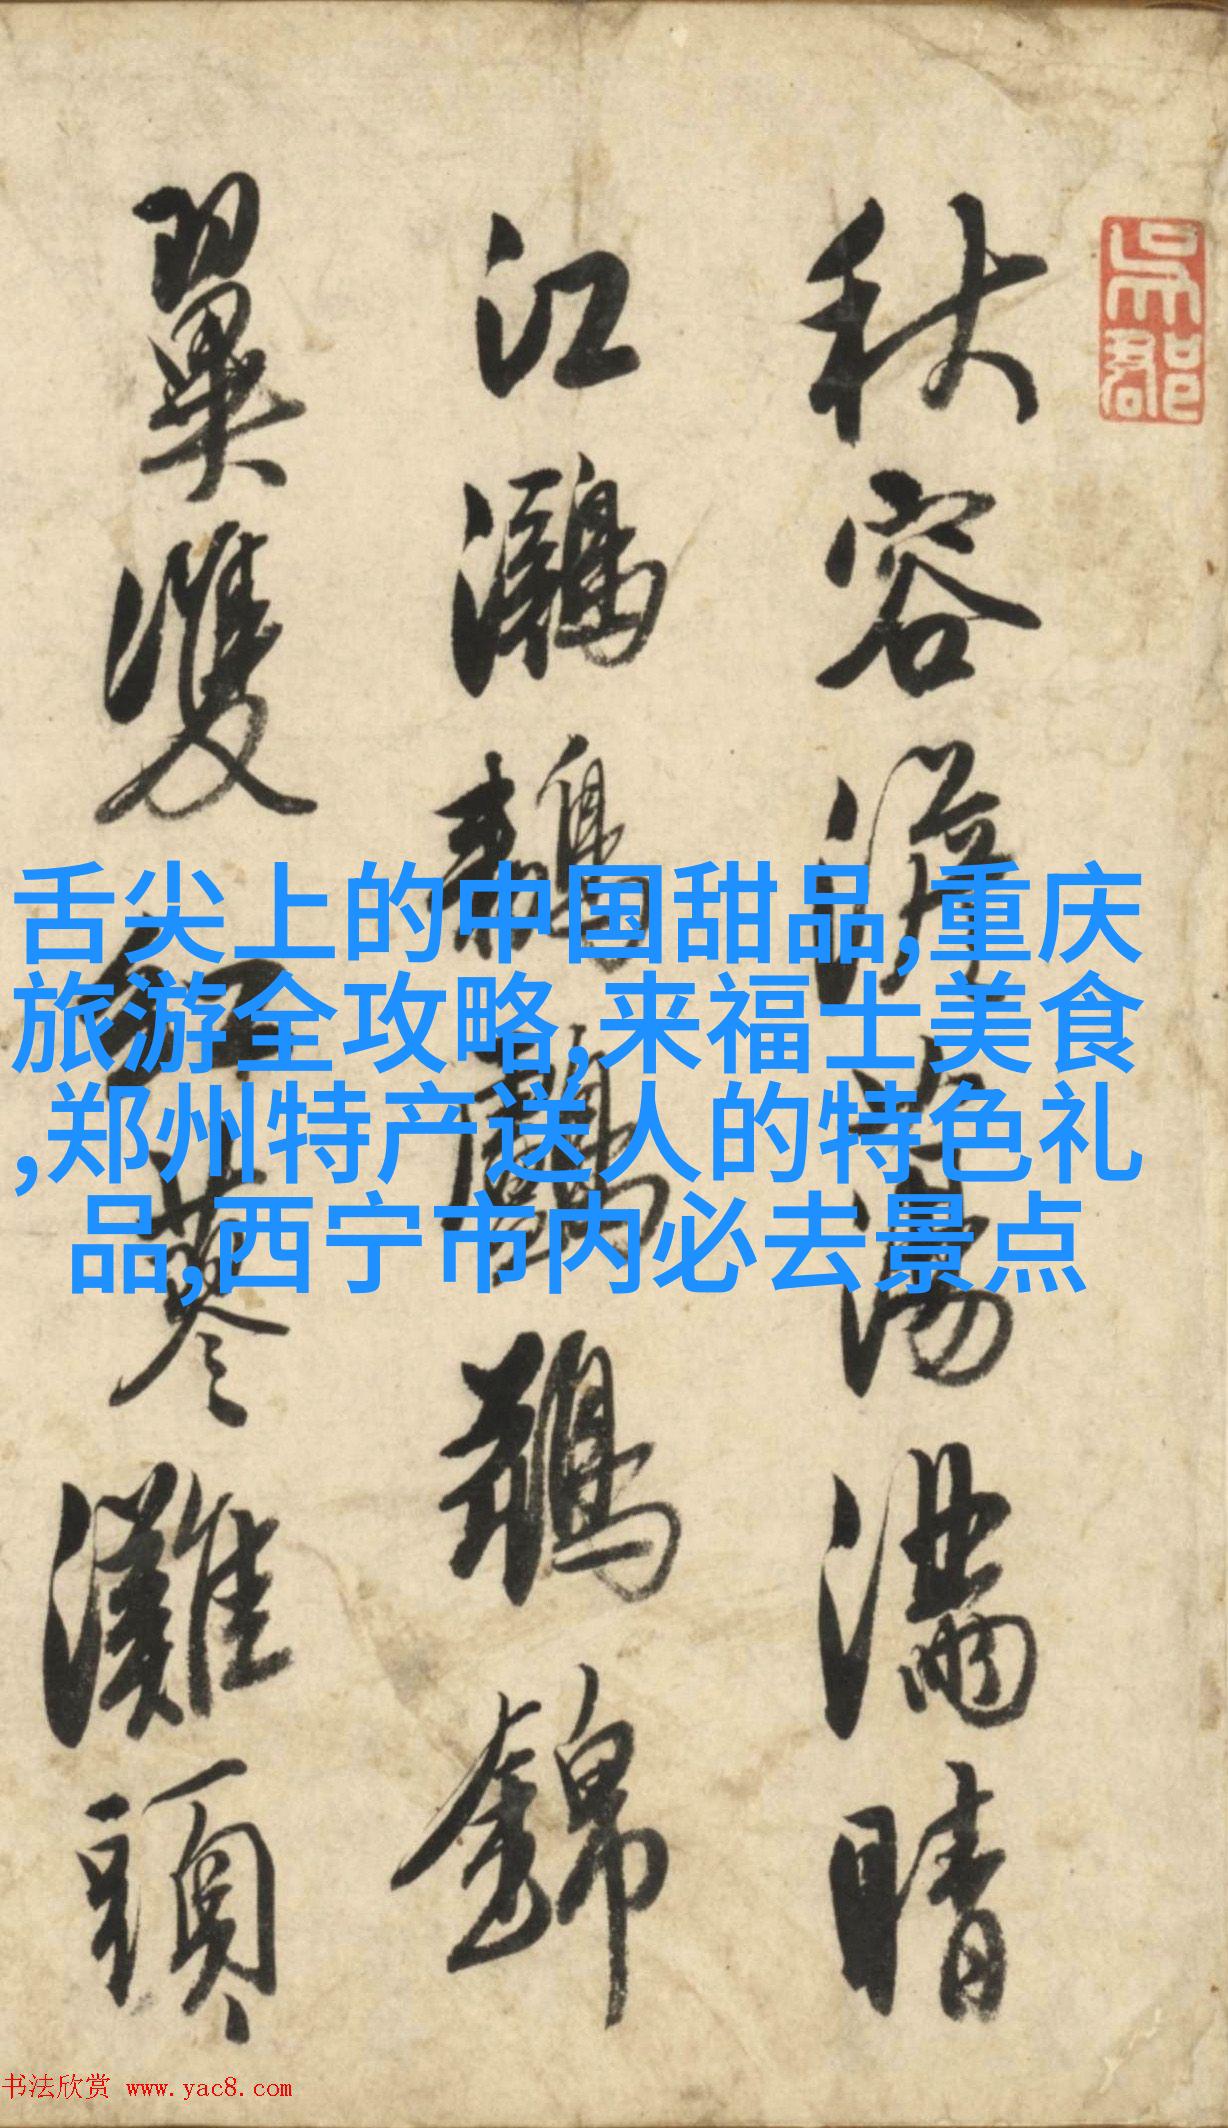 吳郡
秋容澹蕩滿晴
江鸂鶒錦
翼雙紅蓼灘頭
舌尖上的中国甜品,重庆
旅游全攻略,来福士美食
,郑州特产送人的特色礼
品,西宁市内必去景点
书法欣赏 www.yac8.com